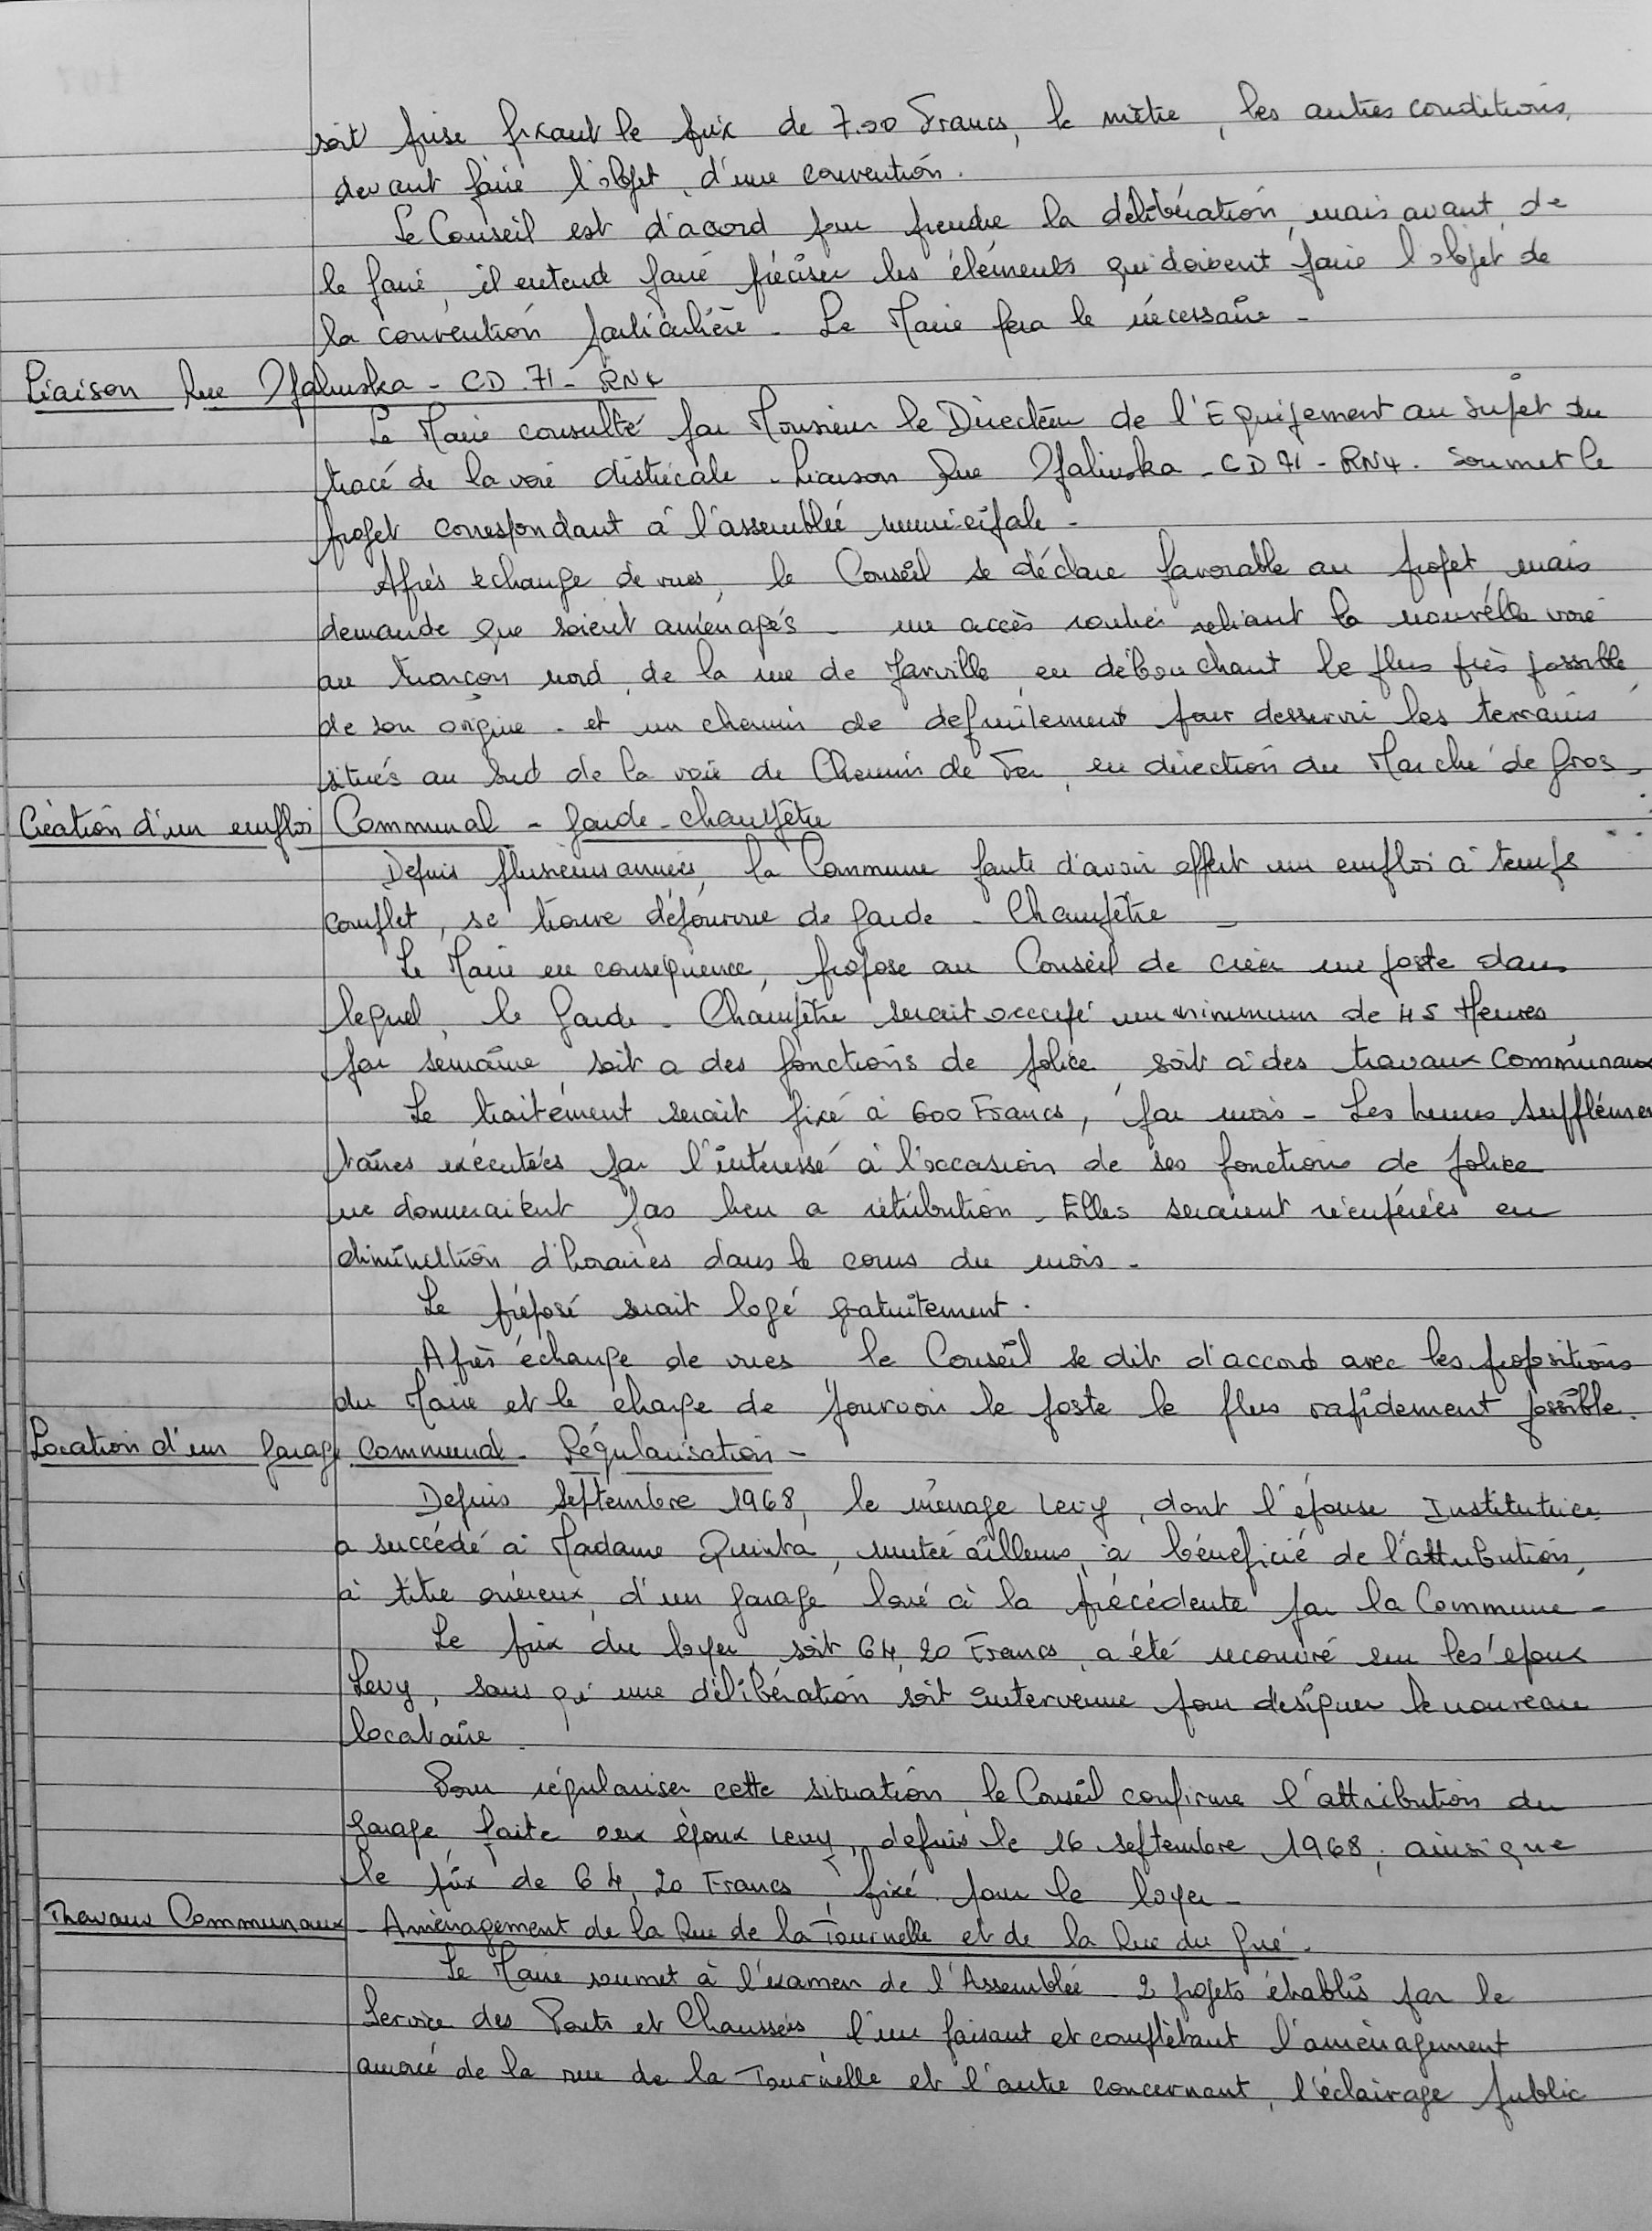 soit prise fixant le prix de 7.00 Francs, le mètre, les autres conditions,
devant faire l'objet d'une convention.
Le Conseil est d'acord pour prendre la délibération, mais avant de
le faire, il entend faire préciser les éléments qui doivent faire l'objet de
la convention particulière - Le Maire fera le nécessaire -
Liaison Rue Ofalinska - CD.71 - RN4
Le Maire consulté par Monsieur le Directeur de l'Equipement au sujet du
tracé de la voie districale - Liaison Rue Ofalinska - CD 71 - RN4. Soumet le
projet correspondant à l'assemblée municipale -
Après échange de vues, le Conseil se déclare favorable au projet, mais
demande que soient aménagés - un accès routier reliant la nouvelle voie
au tronçon nord, de la rue de Jarville, en débouchant le plus près possible
de son origine - et un chemin de defruitement pour desservir les terrains
situés au Sud de la voie de Chemin de Fer, en direction du Marché de Gros -
Création d'un emploi Communal - Garde-champêtre
Depuis plusieurs années, la Commune faute d'avoir offert un emploi à temps
complet, se trouve dépourvue de Garde - Champêtre -
Le Maire en conséquence, propose au Conseil de créer un poste dans
lequel, le Garde - Champêtre serait occupé un minimum de 45 Heures
par semaine, soit a des fonctions de police, soit à des travaux Communaux
Le traitement serait fixé à 600 Francs, par mois - Les heures supplémen
taires exécutées par l'intéressé à l'occasion de ses fonctions de police
ne donneraient pas lieu a rétribution - Elles seraient récupérées en
diminution d'horaires dans le cours du mois -
Le préposé serait logé gratuitement.
Après échange de vues le Conseil se dit d'accord avec les propositions
du Maire et le charge de pourvoir le poste le plus rapidement possible.
Location d'un Garage Communal - Régularisation -
Depuis Septembre 1968, le ménage Levy, dont l'épouse Institutrice
a succédé à Madame Quinta, mutée ailleurs, a bénéficié de l'attribution,
à titre onéreux, d'un garage loué à la précédente par la Commune -
Le prix du loyer, soit 64,20 Francs, a été recouvré sur les époux
Levy, sans qu'une délibération soit intervenue pour désigner le nouveau
locataire.
Pour régulariser cette situation, le Conseil confirme l'attribution du
garage faite aux époux Levy, depuis le 16 septembre 1968, ainsi que
le prix de 64,20 Francs, fixé pour le loyer -
Travaux Communaux - Aménagement de la Rue de la Tournelle et de la Rue du Gué.
Le Maire soumet à l'examen de l'Assemblée - 2 projets établis par le
Service des Ponts et Chaussées l'un faisant et complétant l'aménagement
amorcé de la rue de la Tournelle et l'autre concernant, l'éclairage public